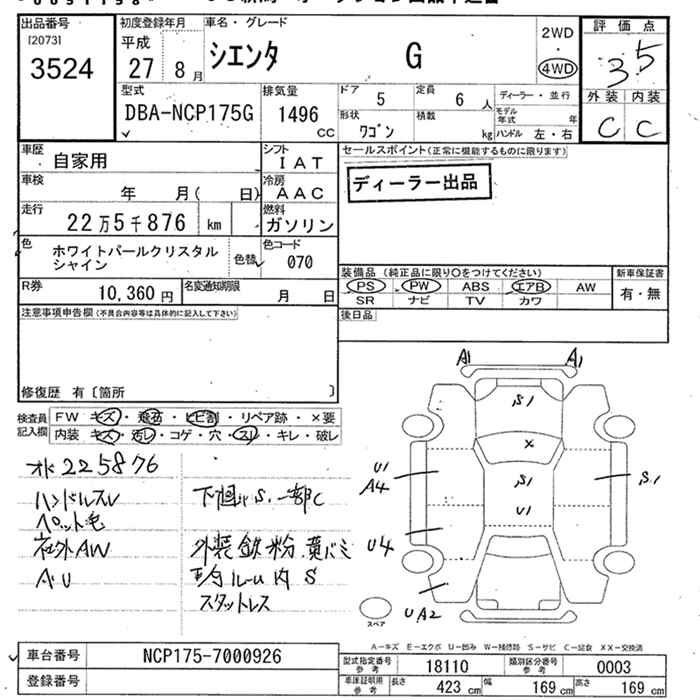 出品番号 初度登録年月 車名・グレード 評価点
[2073] 平成 シエンタ G 2WD 3.5
3524 27 8月 4WD
型式 排気量 ドア 5 定員 6人 ディーラー・並行 外装 内装
DBA-NCP175G 1496 cc 形状 ワゴン 積載 kg モデル年式 年 C C
ハンドル 左・右
車歴 自家用 シフト IAT セールスポイント(正常に機能するものに限ります)
車検 年 月( 日) 冷房 AAC ディーラー出品
走行 22万5千876 km 燃料 ガソリン
色 ホワイトパールクリスタルシャイン 色替 色コード 070
装備品(純正品に限り○をつけてください) 新車保証書
R券 10,360円 名変通知期限 月 日 PS PW ABS エアB AW 有・無
SR ナビ TV カワ
注意事項申告欄(不具合内容等は具体的に記入して下さい) 後日品
修復歴 有〔箇所 〕
検査員記入欄 FW キズ・飛石・ヒビ割・リペア跡・×要
内装 キズ・汚レ・コゲ・穴・スレ・キレ・破レ
225876
ハンドルスレ 下廻りS.一部C
ペット毛
社外AW 外装鉄粉.黄バミ
AU ルーム内S
スタットレス
A1 A1
S1
×
U1 A4 S1 S1
U1
U4
UA2
スペア
A-キズ E-エクボ U-凹み W-補修跡 S-サビ C-腐食 XX-交換済
車台番号 NCP175-7000926 型式指定番号 参考 18110 類別区分番号 参考 0003
登録番号 車庫証明用 参考 長さ 423 cm 幅 169 cm 高さ 169 cm